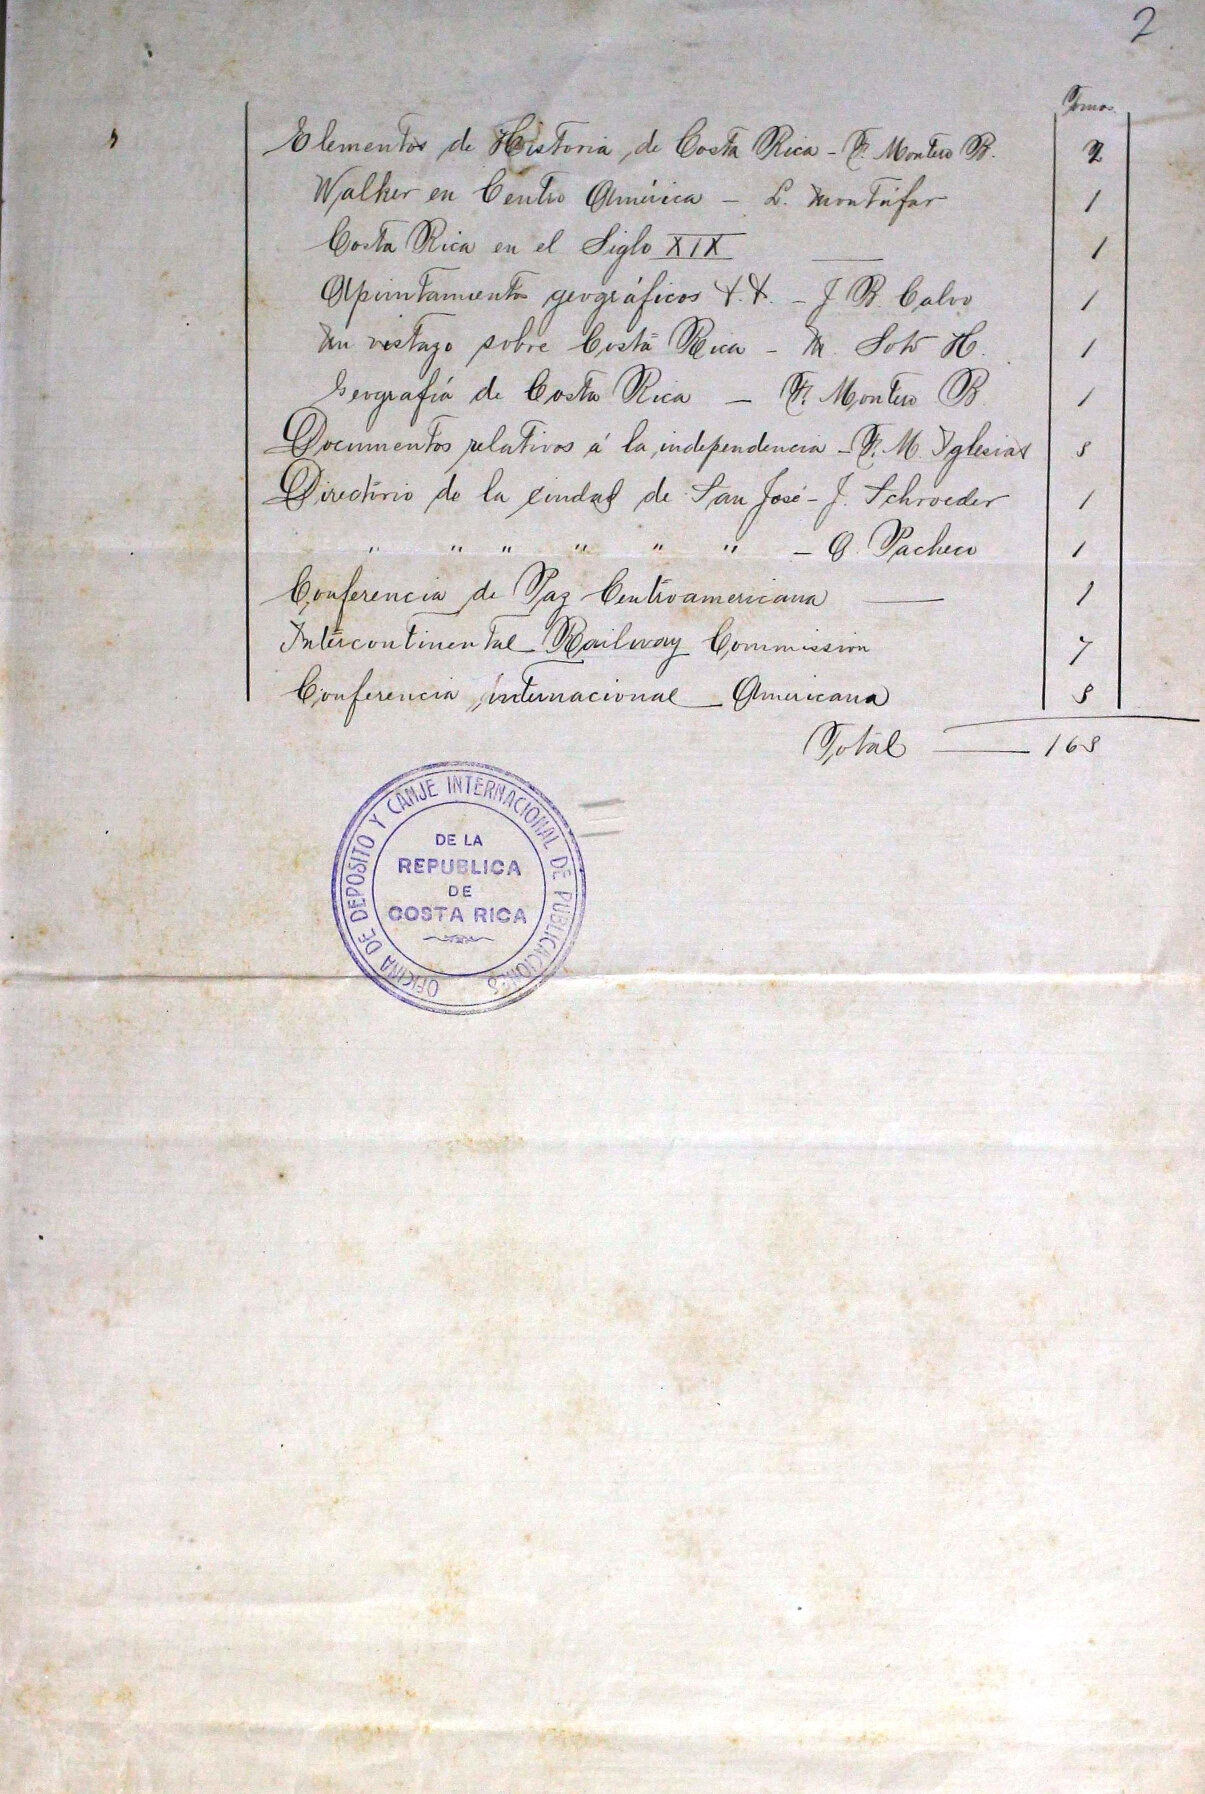 2
Tomos
Elementos de Historia de Costa Rica - F. Montero B. 2
Walker en Centro América - L. Montúfar 1
Costa Rica en el Siglo XIX — 1
Apuntamientos geográficos &. &. - J B Calvo 1
Un vistazo sobre Costa Rica - M. Soto H. 1
Geografía de Costa Rica - F. Montero B. 1
Documentos relativos á la independencia - F. M. Iglesias 3
Directorio de la ciudad de San José - J. Schroeder 1
" " " " " " - O. Pacheco 1
Conferencia de Paz Centroamericana — 1
Intercontinental Railway Commission 7
Conferencia internacional Americana
Total — 168
OFICINA DE DEPOSITO Y CANJE INTERNACIONAL DE PUBLICACIONES
DE LA
REPUBLICA
DE
COSTA RICA